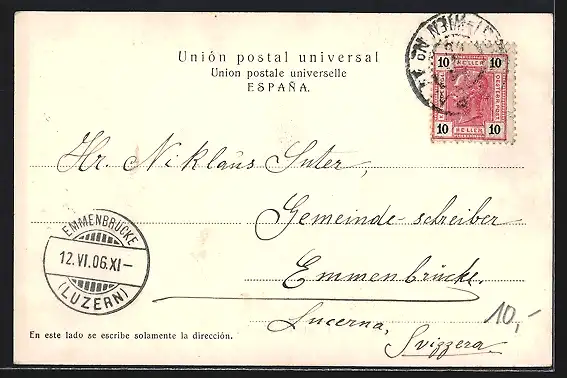 Unión postal universal
Union postale universelle
ESPAÑA.
WIEN
10 10
HELLER
10 HELLER 10
Hr. Niklaus Suter,
Gemeinde-schreiber
Emmenbrücke.
Lucerna,
Svizzera.
EMMENBRÜCKE
12.VI.06.XI-
(LUZERN)
10,-
En este lado se escribe solamente la dirección.